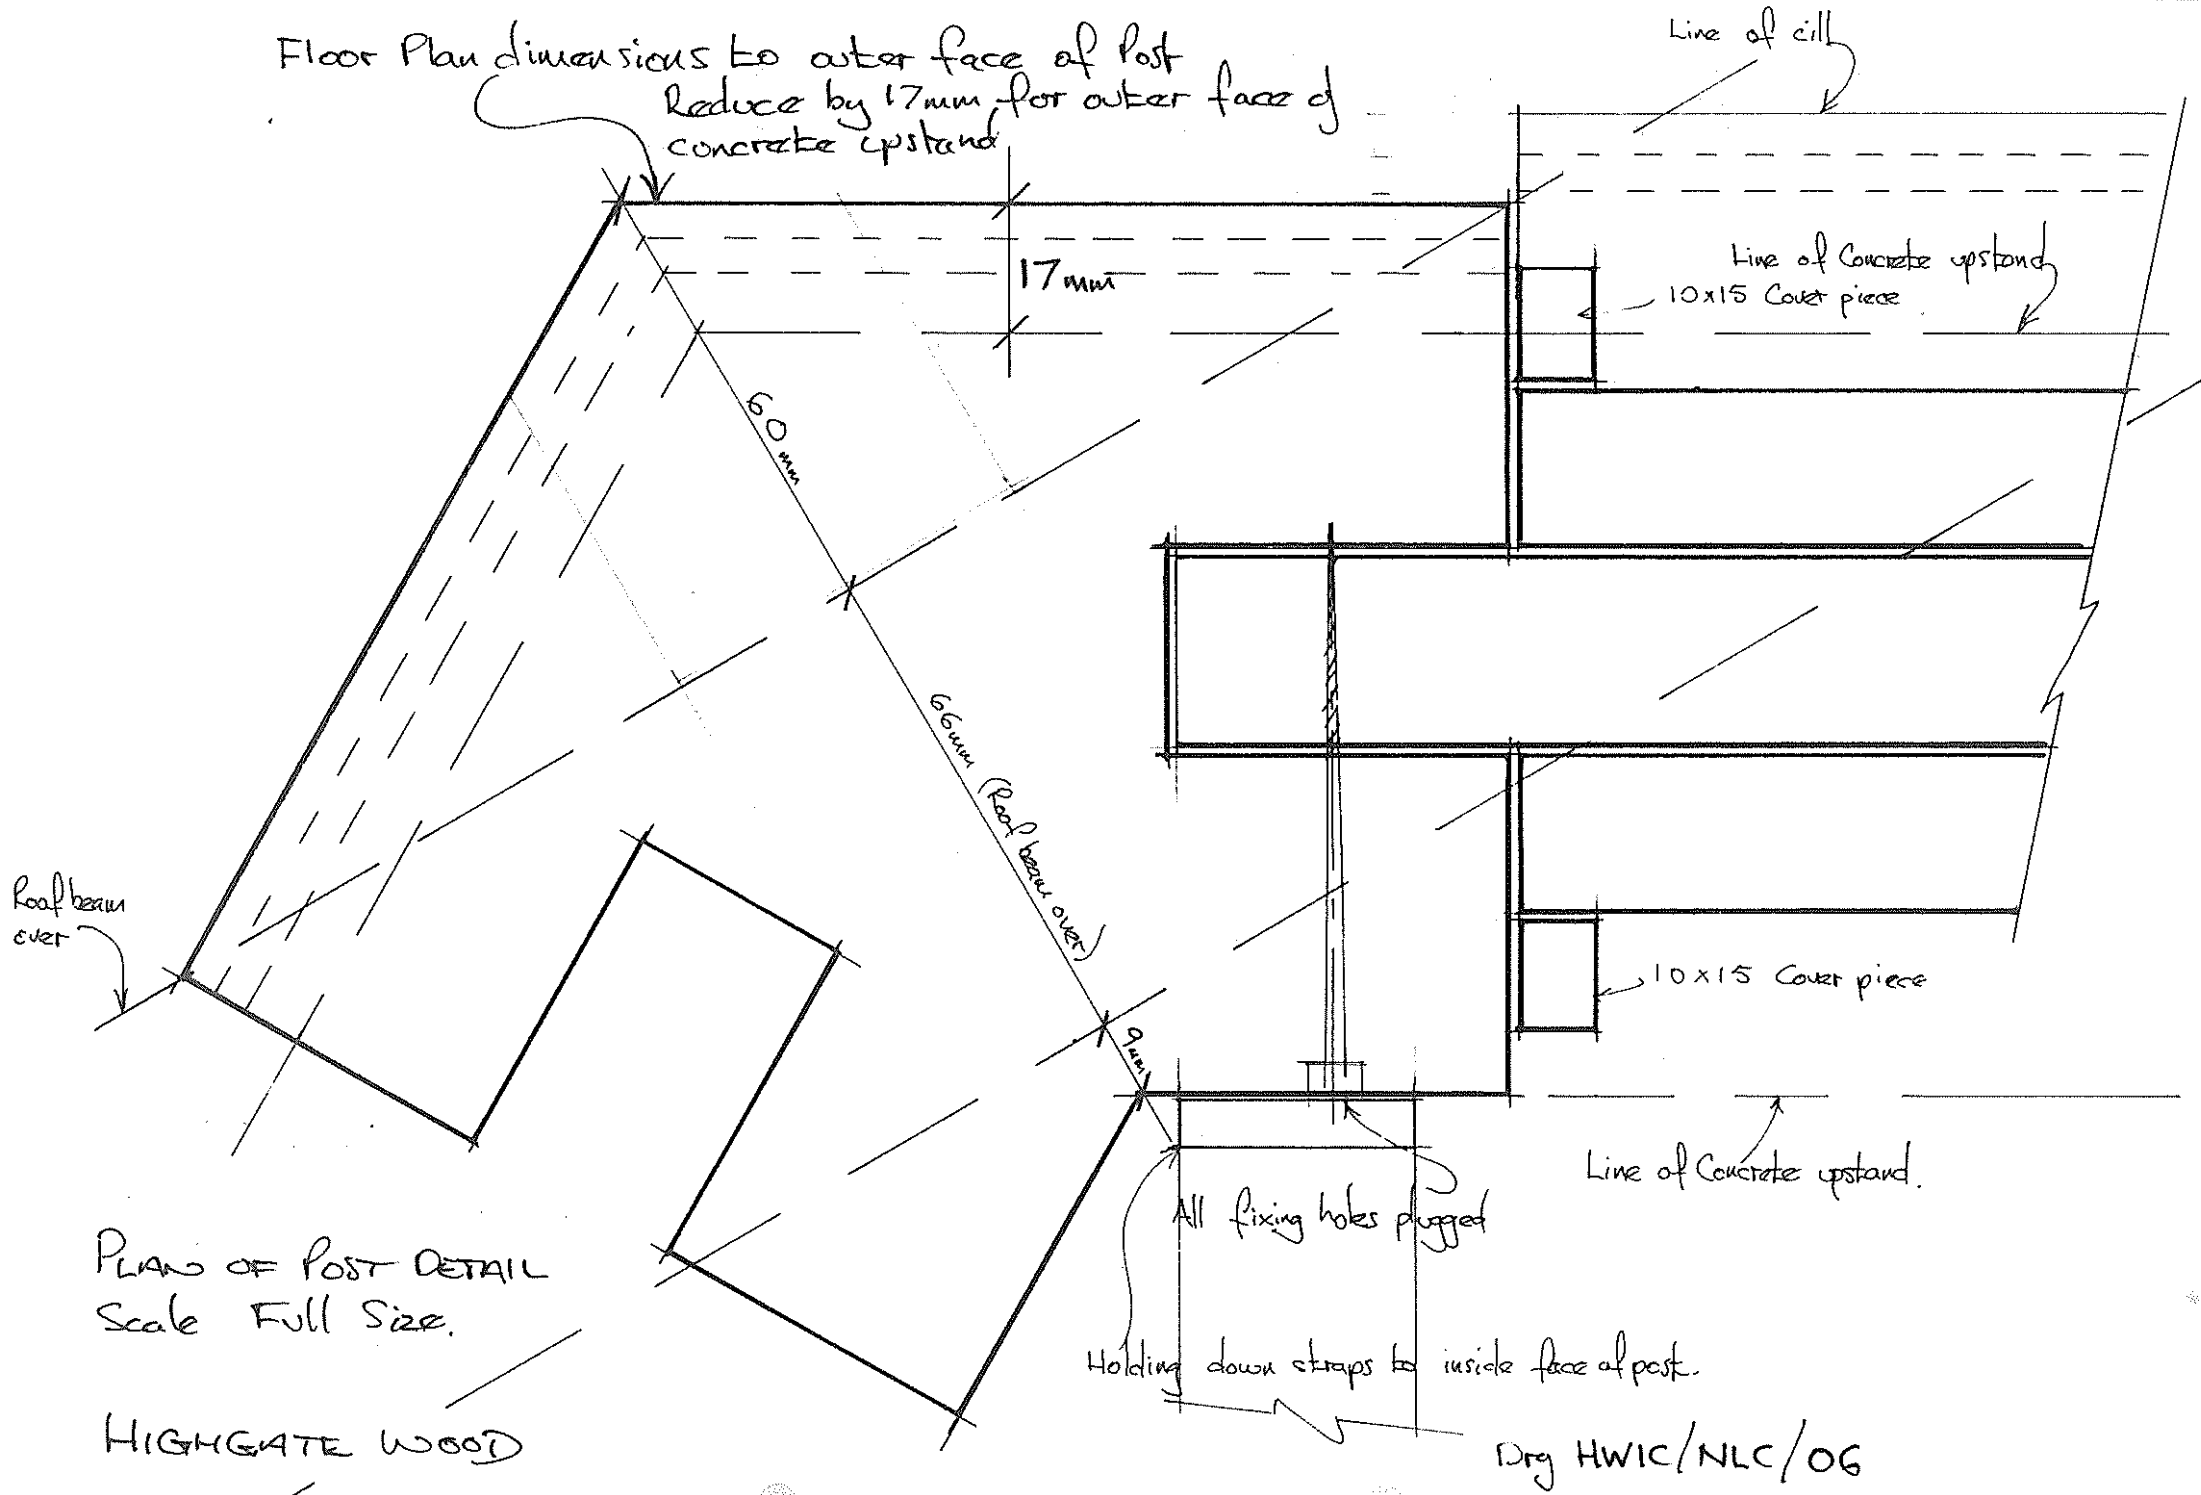 Floor Plan dimensions to outer face of Post
Reduce by 17mm for outer face of
concrete upstand
Line of cill
17mm
Line of Concrete upstand
10x15 Cover piece
60mm
66mm (Roof beam over)
Roof beam
over
9mm
10x15 Cover piece
Line of Concrete upstand.
All fixing holes plugged
PLAN OF POST DETAIL
Scale Full Size.
Holding down straps to inside face of post.
HIGHGATE WOOD
Drg HWIC/NLC/06